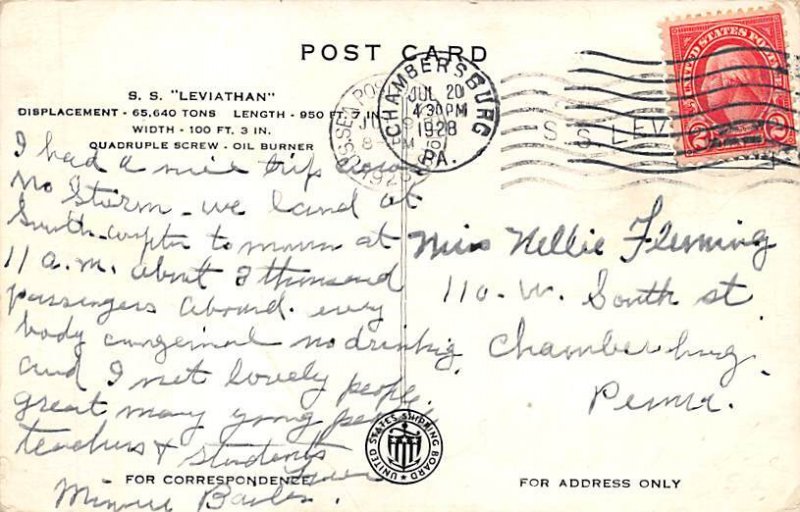 POST CARD
S. S. "LEVIATHAN"
DISPLACEMENT - 65,640 TONS LENGTH - 950 FT. 7 IN.
WIDTH - 100 FT. 3 IN.
QUADRUPLE SCREW - OIL BURNER
CHAMBERSBURG
JUL 20
4 30 PM
1928
PA.
S.S. LEV
UNITED STATES POSTAGE
2 2
I had a nice trip
no Storm - we land at
South-ampton to morrow at
11 a.m. about 2 thousand
passengers aboard. every
body congenial no drinking
and I met lovely people.
great many young
teachers & students
Minnie
Miss Nellie Fleming
110. W. South st.
Chambersburg.
Penna.
UNITED STATES SHIPPING BOARD
FOR CORRESPONDENCE
FOR ADDRESS ONLY